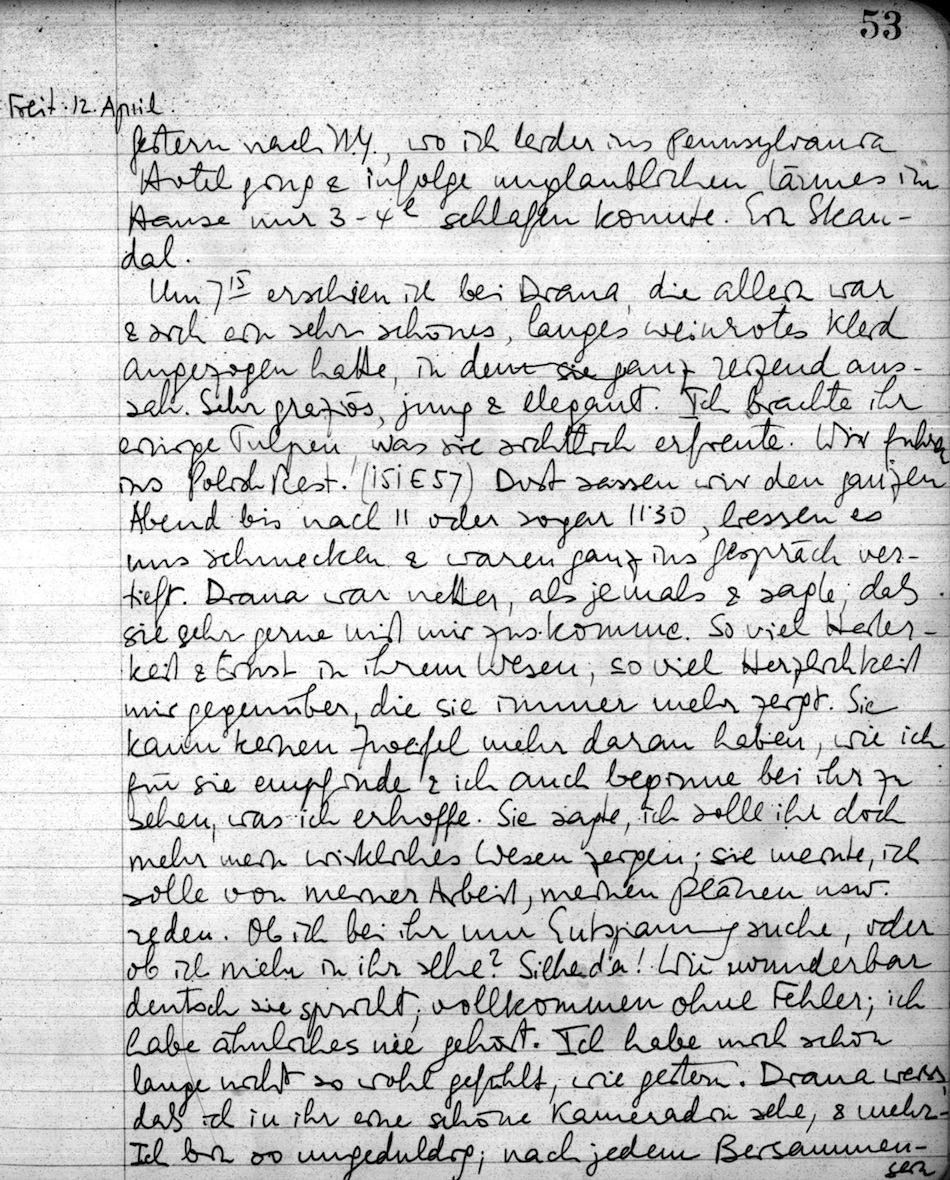 53
Freit. 12. April.
Gestern nach NY., wo ich leider ins Pennsylvania
Hotel ging & infolge unglaublichen Lärmes im
Hause nur 3-4h schlafen konnte. Ein Skan-
dal.
Um 7 15 erschien ich bei Diana, die allein war
& sich ein sehr schönes, langes weinrotes Kleid
angezogen hatte, in dem sie ganz reizend aus-
sah. Sehr graziös, jung & elegant. Ich brachte ihr
einige Tulpen, was sie sichtlich erfreute. Wir fuhren
ins Polish Rest. (151 E 57) Dort sassen wir den ganzen
Abend bis nach 11 oder sogar 11.30, liessen es
uns schmecken & waren ganz ins Gespräch ver-
tieft. Diana war netter, als jemals & sagte, daß
sie sehr gerne mit mir zus.komme. So viel Heiter-
keit & Ernst in ihrem Wesen, so viel Herzlichkeit
mir gegenüber, die sie immer mehr zeigt. Sie
kann keinen Zweifel mehr daran haben, wie ich
für sie empfinde & ich auch beginne bei ihr zu
sehen, was ich erhoffe. Sie sagte, ich solle ihr doch
mehr mein wirkliches Wesen zeigen; sie meinte, ich
solle von meiner Arbeit, meinen Plänen usw.
reden. Ob ich bei ihr nur Entspannung suche, oder
ob ich mehr in ihr sehe? Siehe da! Wie wunderbar
deutsch sie spricht, vollkommen ohne Fehler; ich
habe ähnliches nie gehört. Ich habe mich schon
lange nicht so wohl gefühlt, wie gestern. Diana weiss,
daß ich in ihr eine schöne Kameradin sehe, & mehr.
Ich bin so ungeduldig; nach jedem Beisammen-
sein